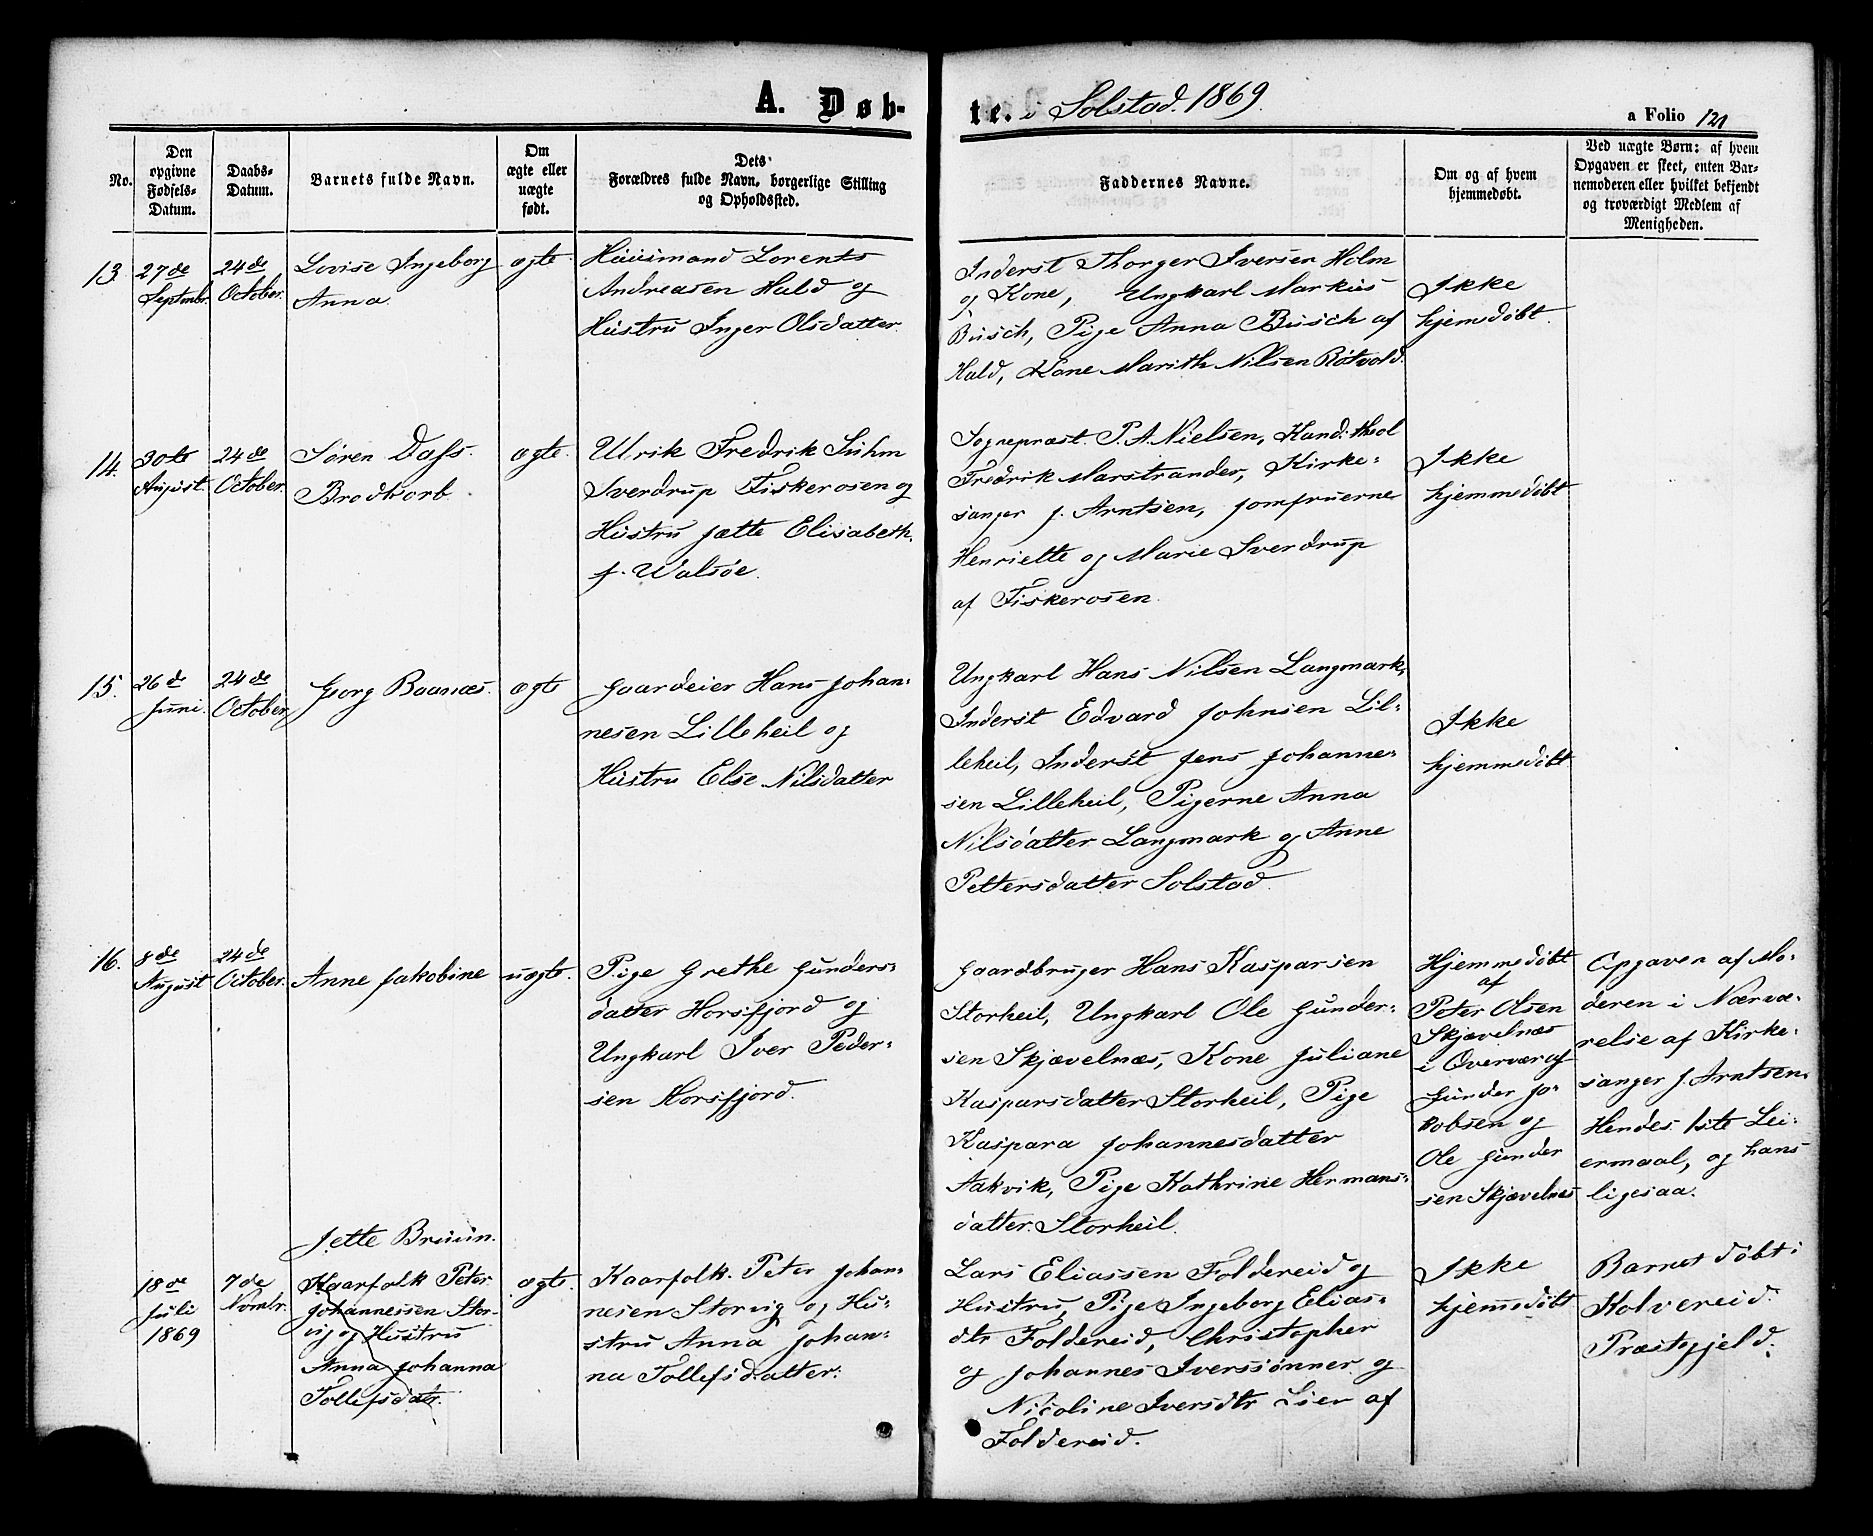 A. Døb-
te. i Solstad. 1869.
a Folio 121
No.
Den
opgivne
Fødsels-
Datum.
Daabs-
Datum.
Barnets fulde Navn.
Om
ægte eller
uægte
født.
Dets
Forældres fulde Navn, borgerlige Stilling
og Opholdssted.
Faddernes Navne.
Om og af hvem
hjemmedøbt.
Ved uægte Børn: af hvem
Opgaven er skeet, enten Bar-
nemoderen eller hvilket bekjendt
og troværdigt Medlem af
Menigheden.
13.
27de
Septmbr.
24de
October.
Lovise Ingeborg
Anna.
ægte
Huusmand Lorents
Andreasen Hald og
Hustru Inger Olsdatter.
Inderst Thorger Iversen Holm
og Kone, Ungkarl Markus
Busch, Pige Anna Busch af
Hald, Kone Marith Nilsen Røtvold.
Ikke
hjemdøbt.
14.
30te
August.
24de
October.
Søren Dass.
Brodkorb.
ægte.
Ulrik Fredrik Suhm
Sverdrup Fiskerosen og
Hustru Jætte Elisabeth
f. Walsøe.
Sognepræst. P. A. Nielsen, Kand: theol
Fredrik Marstrander, Kirke-
sanger J. Arntsen, Jomfruerne
Henriette og Marie Sverdrup
af Fiskerosen.
Ikke
hjemmedøbt
15.
26de
Juni.
24de
October.
Georg Baanæs.
ægte
Gaardeier Hans Johan-
nesen Lilleheil og
Hustru Else Nilsdatter
Ungkarl Hans Nilsen Langmark,
Inderst Edvard Johnsen Lil-
leheil, Inderst Jens Johanne-
sen Lilleheil, Pigerne Anna
Nilsdatter Langmark og Anne
Pettersdatter Solstad.
Ikke
hjemmedøbt
16.
8de
August
24de
October.
Anne Jakobine
uægte.
Pige Grethe Gunders-
datter Horsfjord og
Ungkarl Iver Peder-
sen Horsfjord.
Gaardbruger Hans Kasparsen
Storheil, Ungkarl Ole Gunder-
sen Skjævelnæs, Kone Juliane
Kasparsdatter Storheil, Pige
Kaspara Johannesdatter
Aakvik, Pige Kathrine Hermans-
datter Storheil.
Hjemmedøbt
af
Peter Olsen
Skjævelnæs
i Overvær af
Gunder Ja-
kobsen og
Ole Gunder
sen Skjævelnæs
Opgaven af Mo-
deren i Nærvæ-
relse af Kirke-
sanger J. Arntsen.
Hendes 1ste Lei-
ermaal, og hans
ligesaa.
18de
Juli
1869
7de
Novmbr.
Jette Bruun.
Kaarfolk Peter
Johannessen Stor-
vig og Hustru
Anna Johanna
Tollefsdatr.
ægte.
Kaarfolk. Peter Johan-
nesen Storvig og Hu-
stru Anna Johan-
na Tollefsdatter.
Lars Eliassen Foldereid og
Hustru, Pige Ingeborg Elias-
dtr Foldereid, Christopher
og Johannes Iverssønner og
Nicoline Iversdtr Lier af
Foldereid.
Ikke
hjemmedøbt
Barnet døbt i
Kolvereid
Præstegjeld.